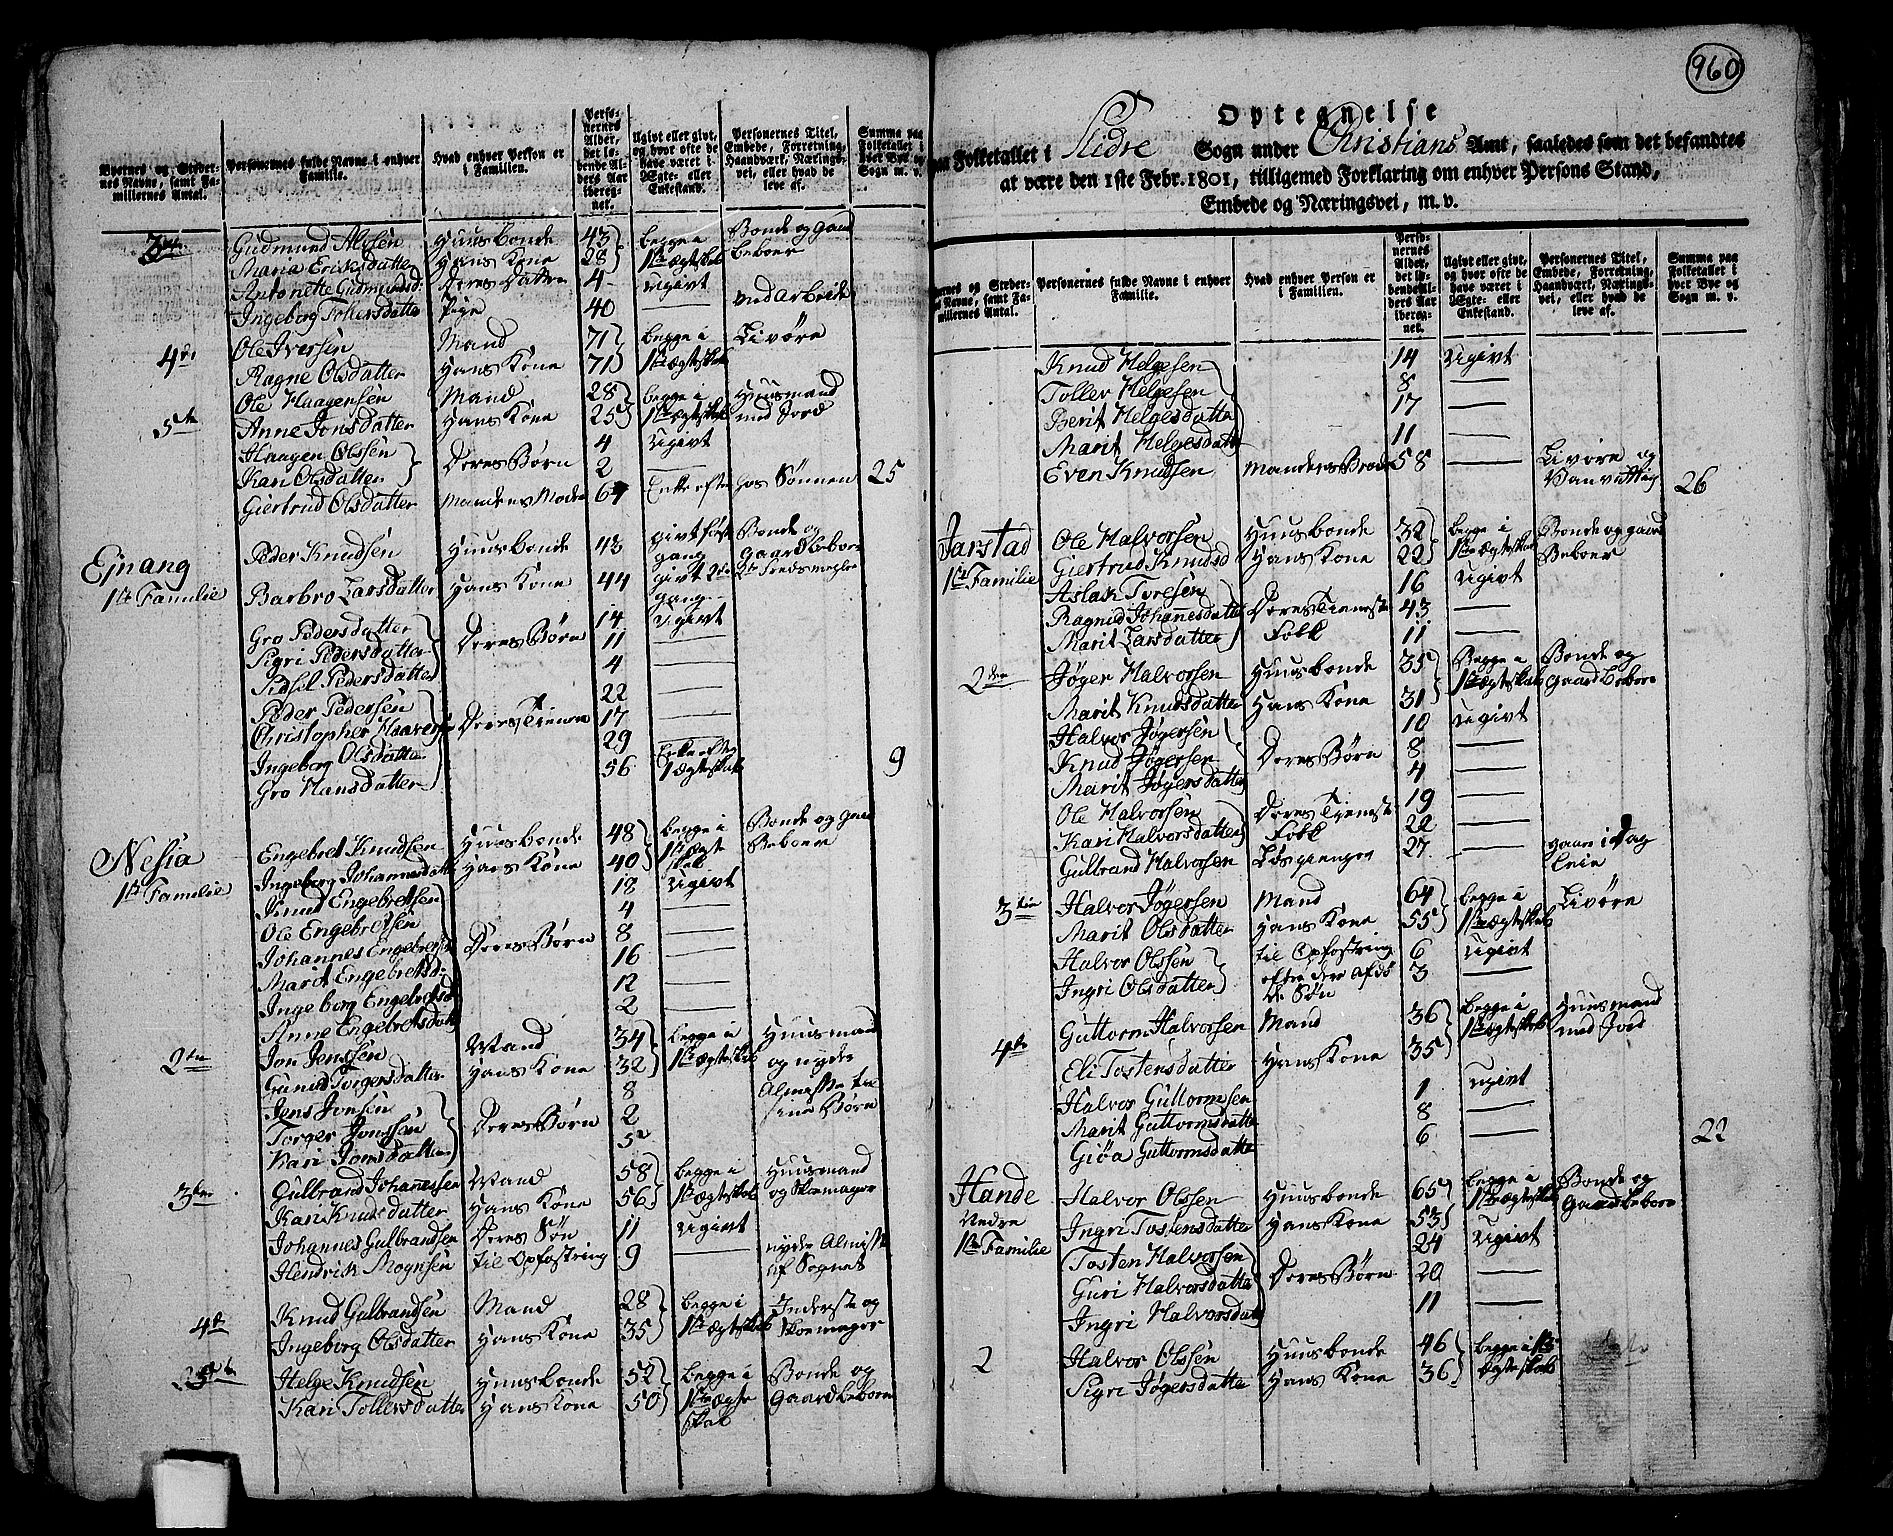 Byernes og Stedernes Navne, samt Familliernes Antal.
Personernes fulde Navne i enhver Familie.
Hvad enhver Person er i Familien.
Personernes Alder, det løbende Alders Aar iberegnet.
Ugivt eller givt, og hvor ofte de have været i Ægte- eller Enkestand.
Personernes Titel, Embede, Forretning, Haandværk, Næringsvei, eller hvad de leve af.
Summa paa Folketallet i hver Bye og Sogn m. v.
3die Gudmund Alfsen Huusbonde 43 begge i Bonde og gaard
Maria Eriksdatter Hans Kone 28 1ste Ægteskab beboer
Antonette Gudmundsd Deres Datter 4 ugivt
Ingeborg Tollersdatter Pige 40 — ved arbeide
4de Ole Iversen Mand 71 begge i Livøre
Ragne Olsdatter Hans Kone 71 1ste Ægteskab
5te Ole Haagensen Mand 28 begge i Huusmand
Anne Jonsdatter Hans Kone 25 1ste Ægteskab med Jord
Haagen Olssen 4 ugivt
Kari Olsdatter Deres Børn 2 —
Giertrud Olsdatter Mandens Moder 67 Enke efter hos Sønnen 25
Ejnang
1ste Familie
Peder Knudsen Huusbonde 43 givt første gang Bonde og Gaardbeboer
Barbro Larsdatter Hans Kone 44 givt 2den gang
Gro Pedersdatter 14 ugivt
Sigri Pedersdatter Deres Børn 11 —
Sidsil Pedersdatter 4 —
Peder Pedersen 22 —
Christopher Haaversen Deres Tienere 17 —
Ingeborg Olsdatter 29 —
Gro Hansdatter 56 Enke efter 1 Ægteskab 9
Nesia
1ste Familie
Engebret Knudsen Huusbonde 48 begge i Bonde og gaard
Ingeborg Johannesdatter Hans Kone 40 1ste Ægteskab beboer
Knud Engebretsen 18 ugivt
Ole Engebretsen 4 —
Johannes Engebretsen Deres Børn 8 —
Marit Engebretsd 16 —
Ingeborg Engebretsd 12 —
Anne Engebretsdatter 2 —
2den Jon Jenssen Mand 34 begge i Huusmand
Gunild Torgersdatter Hans Kone 32 1ste Ægteskab og nyder
Jens Jonsen 8 Almisse til
Torger Jonssen Deres Børn 2 sine Børn
Kari Jonsdatter 5
3die Gulbrand Johannessen Mand 58 begge i Huusmand
Kari Knudsdatter Hans Kone 56 1ste Ægteskab og Skomager
Johannes Gulbrandsen Deres Søn 11 ugivt
Hendrik Mognsen til Opfostring 9 — nyder Almisse af Sognet
4de Knud Gulbrandsen Mand 28 begge i Inderste og
Ingeborg Olsdatter Hans Kone 35 1ste Ægteskab Skomager
Helge Knudsen Huusbonde 52 begge i Bonde og
Kari Tollersdatter Hans Kone 50 1ste Ægteskab Gaardbeboer
960
Optegnelse
paa Folketallet i Slidre Sogn under Christians Amt, saaledes som det befandtes
at være den 1ste Febr. 1801, tilligemed Forklaring om enhver Persons Stand,
Embede og Næringsvei, m. v.
Byernes og Stedernes Navne, samt Familliernes Antal.
Personernes fulde Navne i enhver Familie.
Hvad enhver Person er i Familien.
Personernes Alder, det løbende Alders Aar iberegnet.
Ugivt eller givt, og hvor ofte de have været i Ægte- eller Enkestand.
Personernes Titel, Embede, Forretning, Haandværk, Næringsvei, eller hvad de leve af.
Summa paa Folketallet i hver Bye og Sogn m. v.
Knud Helgesen 14 ugivt
Toller Helgesen 8 —
Berit Helgesdatter 17 —
Marit Helgesdatter 11 —
Even Knudsen Mandens Broder 58 — Livøre og Vanvittig 26
Jarstad
1ste Familie
Ole Halvorsen Huusbonde 32 begge i Bonde og gaard
Giertrud Knudsd Hans Kone 22 1ste Ægteskab Beboer
Aslak Toresen 16 ugivt
Ragnild Johannesdatter Deres Tieneste 43 —
Marit Larsdatter Folk 11 —
2den Jøger Halvorsen Huusbonde 35 Begge i Bonde og
Marit Knudsdatter Hans Kone 31 1ste Ægteskab gaardbeboer
Halvor Jøgersen 10 ugivt
Knud Jøgersen Deres Børn 8 —
Marit Jøgersdatter 4 —
Ole Halvorsen Deres Tjeneste 19 —
Kari Halvorsdatter Folk 22 —
Gulbrand Halvorsen Løsgienger 27 — gaar i Dag leie
3die Halvor Jøgersen Mand 64 begge i Livøre
Marit Olsdatter Hans Kone 55 1ste Ægteskab
Halvor Olssen til Opfostring 6 ugivt
Ingri Olsdatter efter den afdøde Søn 3 —
4de Guttorm Halvorsen Mand 36 begge i Huusmand
Eli Tostensdatter Hans Kone 35 1ste Ægteskab med Jord
Halvor Guttormsen 1 ugivt
Marit Guttormsdatter 8 —
Giøa Guttormsdatter 6 — 22
Hande
Nedre
1ste Familie
Halvor Olssen Huusbonde 65 begge i Bonde og
Ingri Tostensdatter Hans Kone 53 1ste Ægteskab Gaardbeboer
Tosten Halvorsen 24 ugivt
Guri Halvorsdatter Deres Børn 20 —
Ingri Halvorsdatter 11 —
2 Halvor Olssen Huusbonde 46 begge i 1ste
Sigri Jøgersdatter Hans Kone 36 Ægteskab